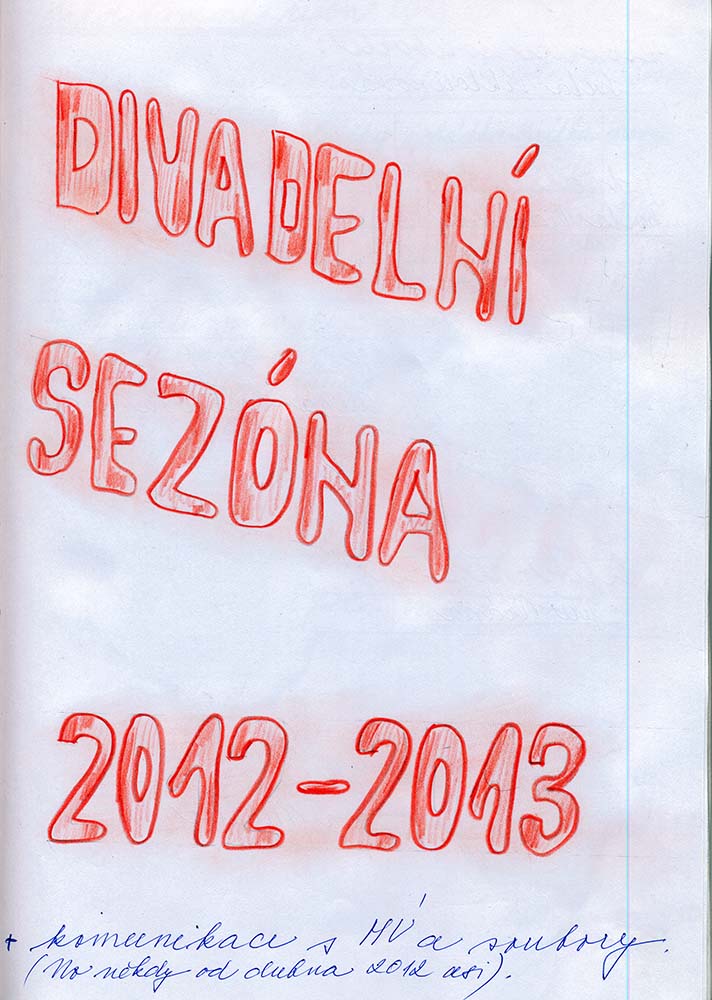 DIVADELNÍ
SEZÓNA
2012-2013
+ komunikace s MV a soubory.
(No někdy od dubna 2012 asi).